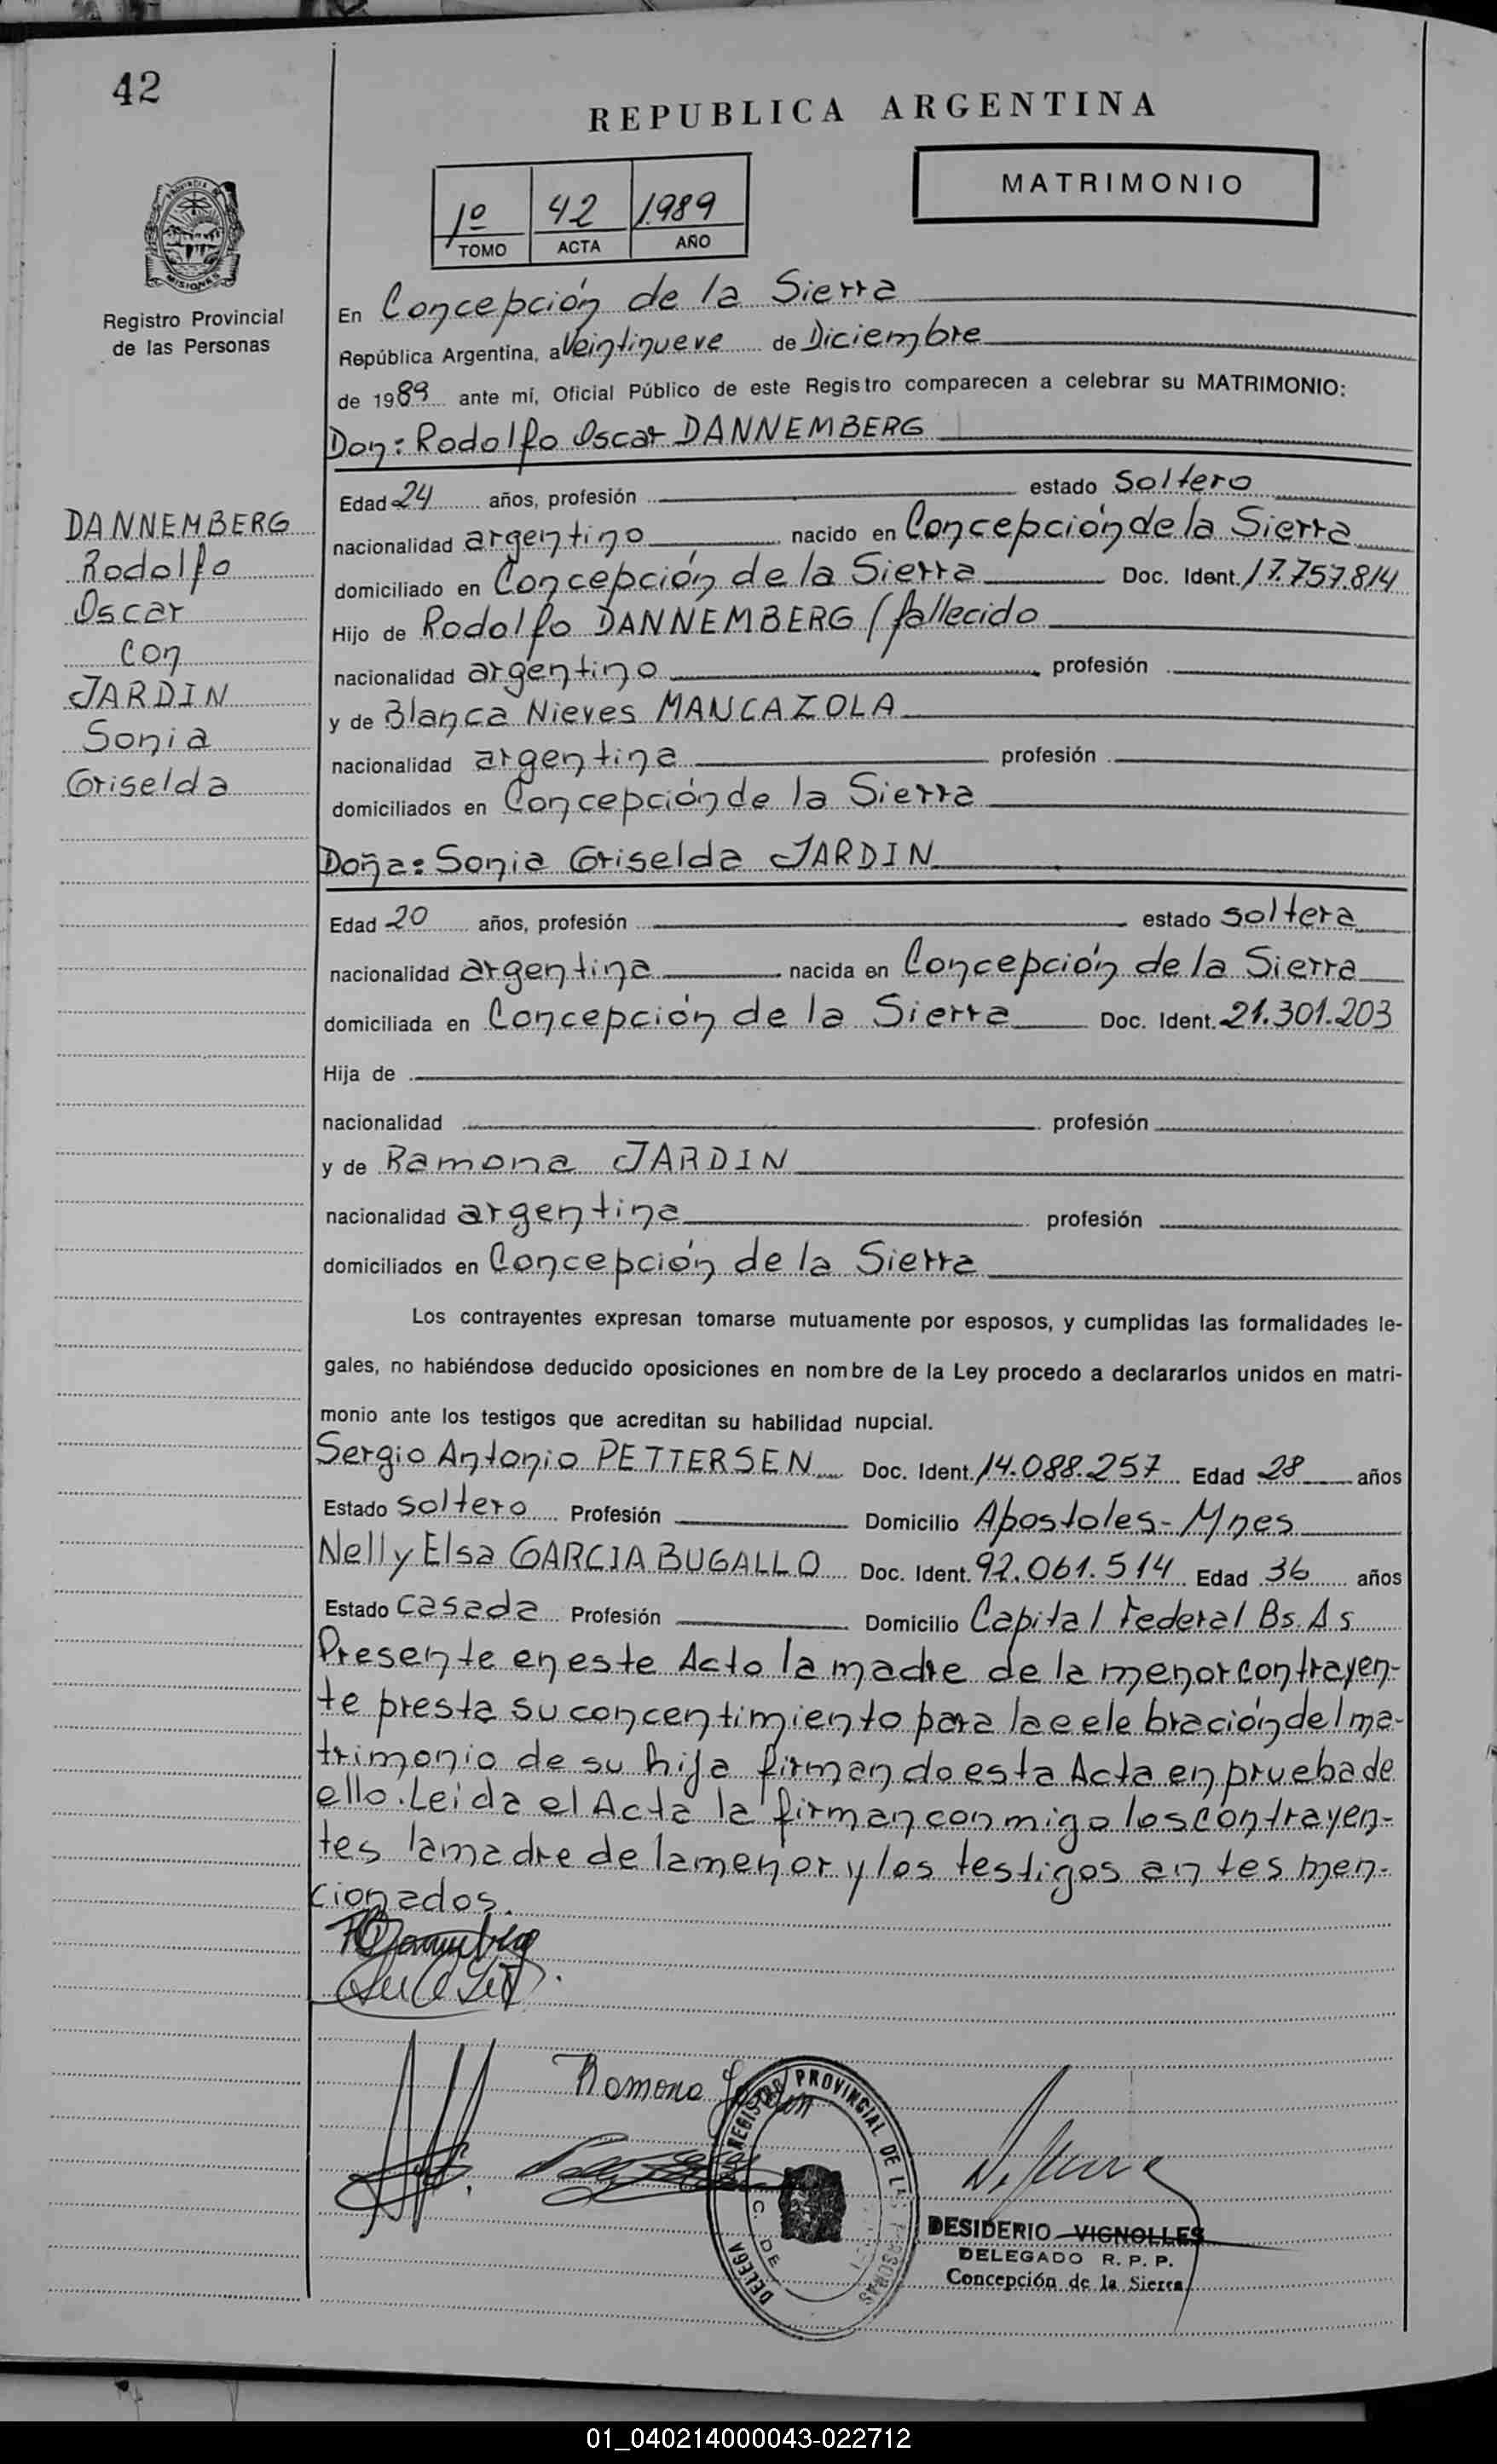 42
REPUBLICA ARGENTINA
MATRIMONIO
1º 42 1989
TOMO ACTA AÑO
PROVINCIA DE
MISIONES
Registro Provincial
de las Personas
En Concepción de la Sierra
República Argentina, a Veintinueve de Diciembre
de 1989 ante mí, Oficial Público de este Registro comparecen a celebrar su MATRIMONIO:
Don: Rodolfo Oscar DANNEMBERG
Edad 24 años, profesión estado Soltero
DANNEMBERG
Rodolfo
Oscar
con
JARDIN
Sonia
Griselda
nacionalidad argentino nacido en Concepción de la Sierra
domiciliado en Concepción de la Sierra Doc. Ident. 17.757.814
Hijo de Rodolfo DANNEMBERG (fallecido
nacionalidad argentino profesión
y de Blanca Nieves MANCAZOLA
nacionalidad argentina profesión
domiciliados en Concepción de la Sierra
Doña: Sonia Griselda JARDIN
Edad 20 años, profesión estado soltera
nacionalidad argentina nacida en Concepción de la Sierra
domiciliada en Concepción de la Sierra Doc. Ident. 21.301.203
Hija de
nacionalidad profesión
y de Ramona JARDIN
nacionalidad argentina profesión
domiciliados en Concepción de la Sierra
Los contrayentes expresan tomarse mutuamente por esposos, y cumplidas las formalidades le-
gales, no habiéndose deducido oposiciones en nombre de la Ley procedo a declararlos unidos en matri-
monio ante los testigos que acreditan su habilidad nupcial.
Sergio Antonio PETTERSEN Doc. Ident. 14.088.257 Edad 28 años
Estado soltero Profesión Domicilio Apostoles - Mnes
Nelly Elsa GARCIA BUGALLO Doc. Ident. 92.061.514 Edad 36 años
Estado casada Profesión Domicilio Capital Federal Bs. As
Presente en este Acto la madre de la menor contrayen-
te presta su concentimiento para la celebración del ma-
trimonio de su hija firmando esta Acta en prueba de
ello. Leida el Acta la firman conmigo los contrayen-
tes la madre de la menor y los testigos antes men-
cionados.
Ramona Jardin
REGISTRO PROVINCIAL DE LAS PERSONAS
DELEGA C. DE
DESIDERIO VIGNOLLES
DELEGADO R. P. P.
Concepción de la Sierra
01_040214000043-022712